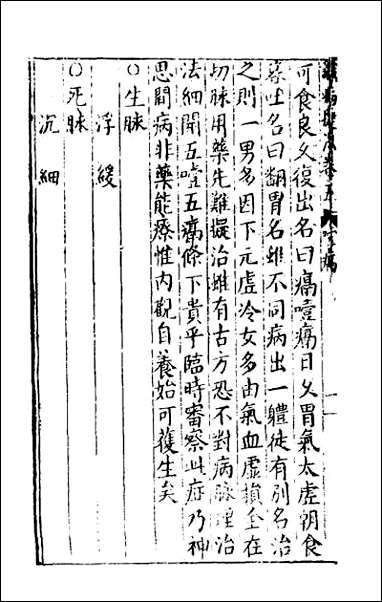 可食良久復出名曰膈噎膈日久胃氣太虛朝食
暮吐名曰翻胃名雖不同病出一體徒有別名治
之則一男多因下元虛冷女多由氣血虛損全在
切脉用藥先難擬治雖有古方恐不對病脉理治
法細開五噎五膈條下貴乎臨時審察此症乃神
思間病非藥能療惟内觀自養始可獲生矣
○生脉
浮緩
○死脉
沉細